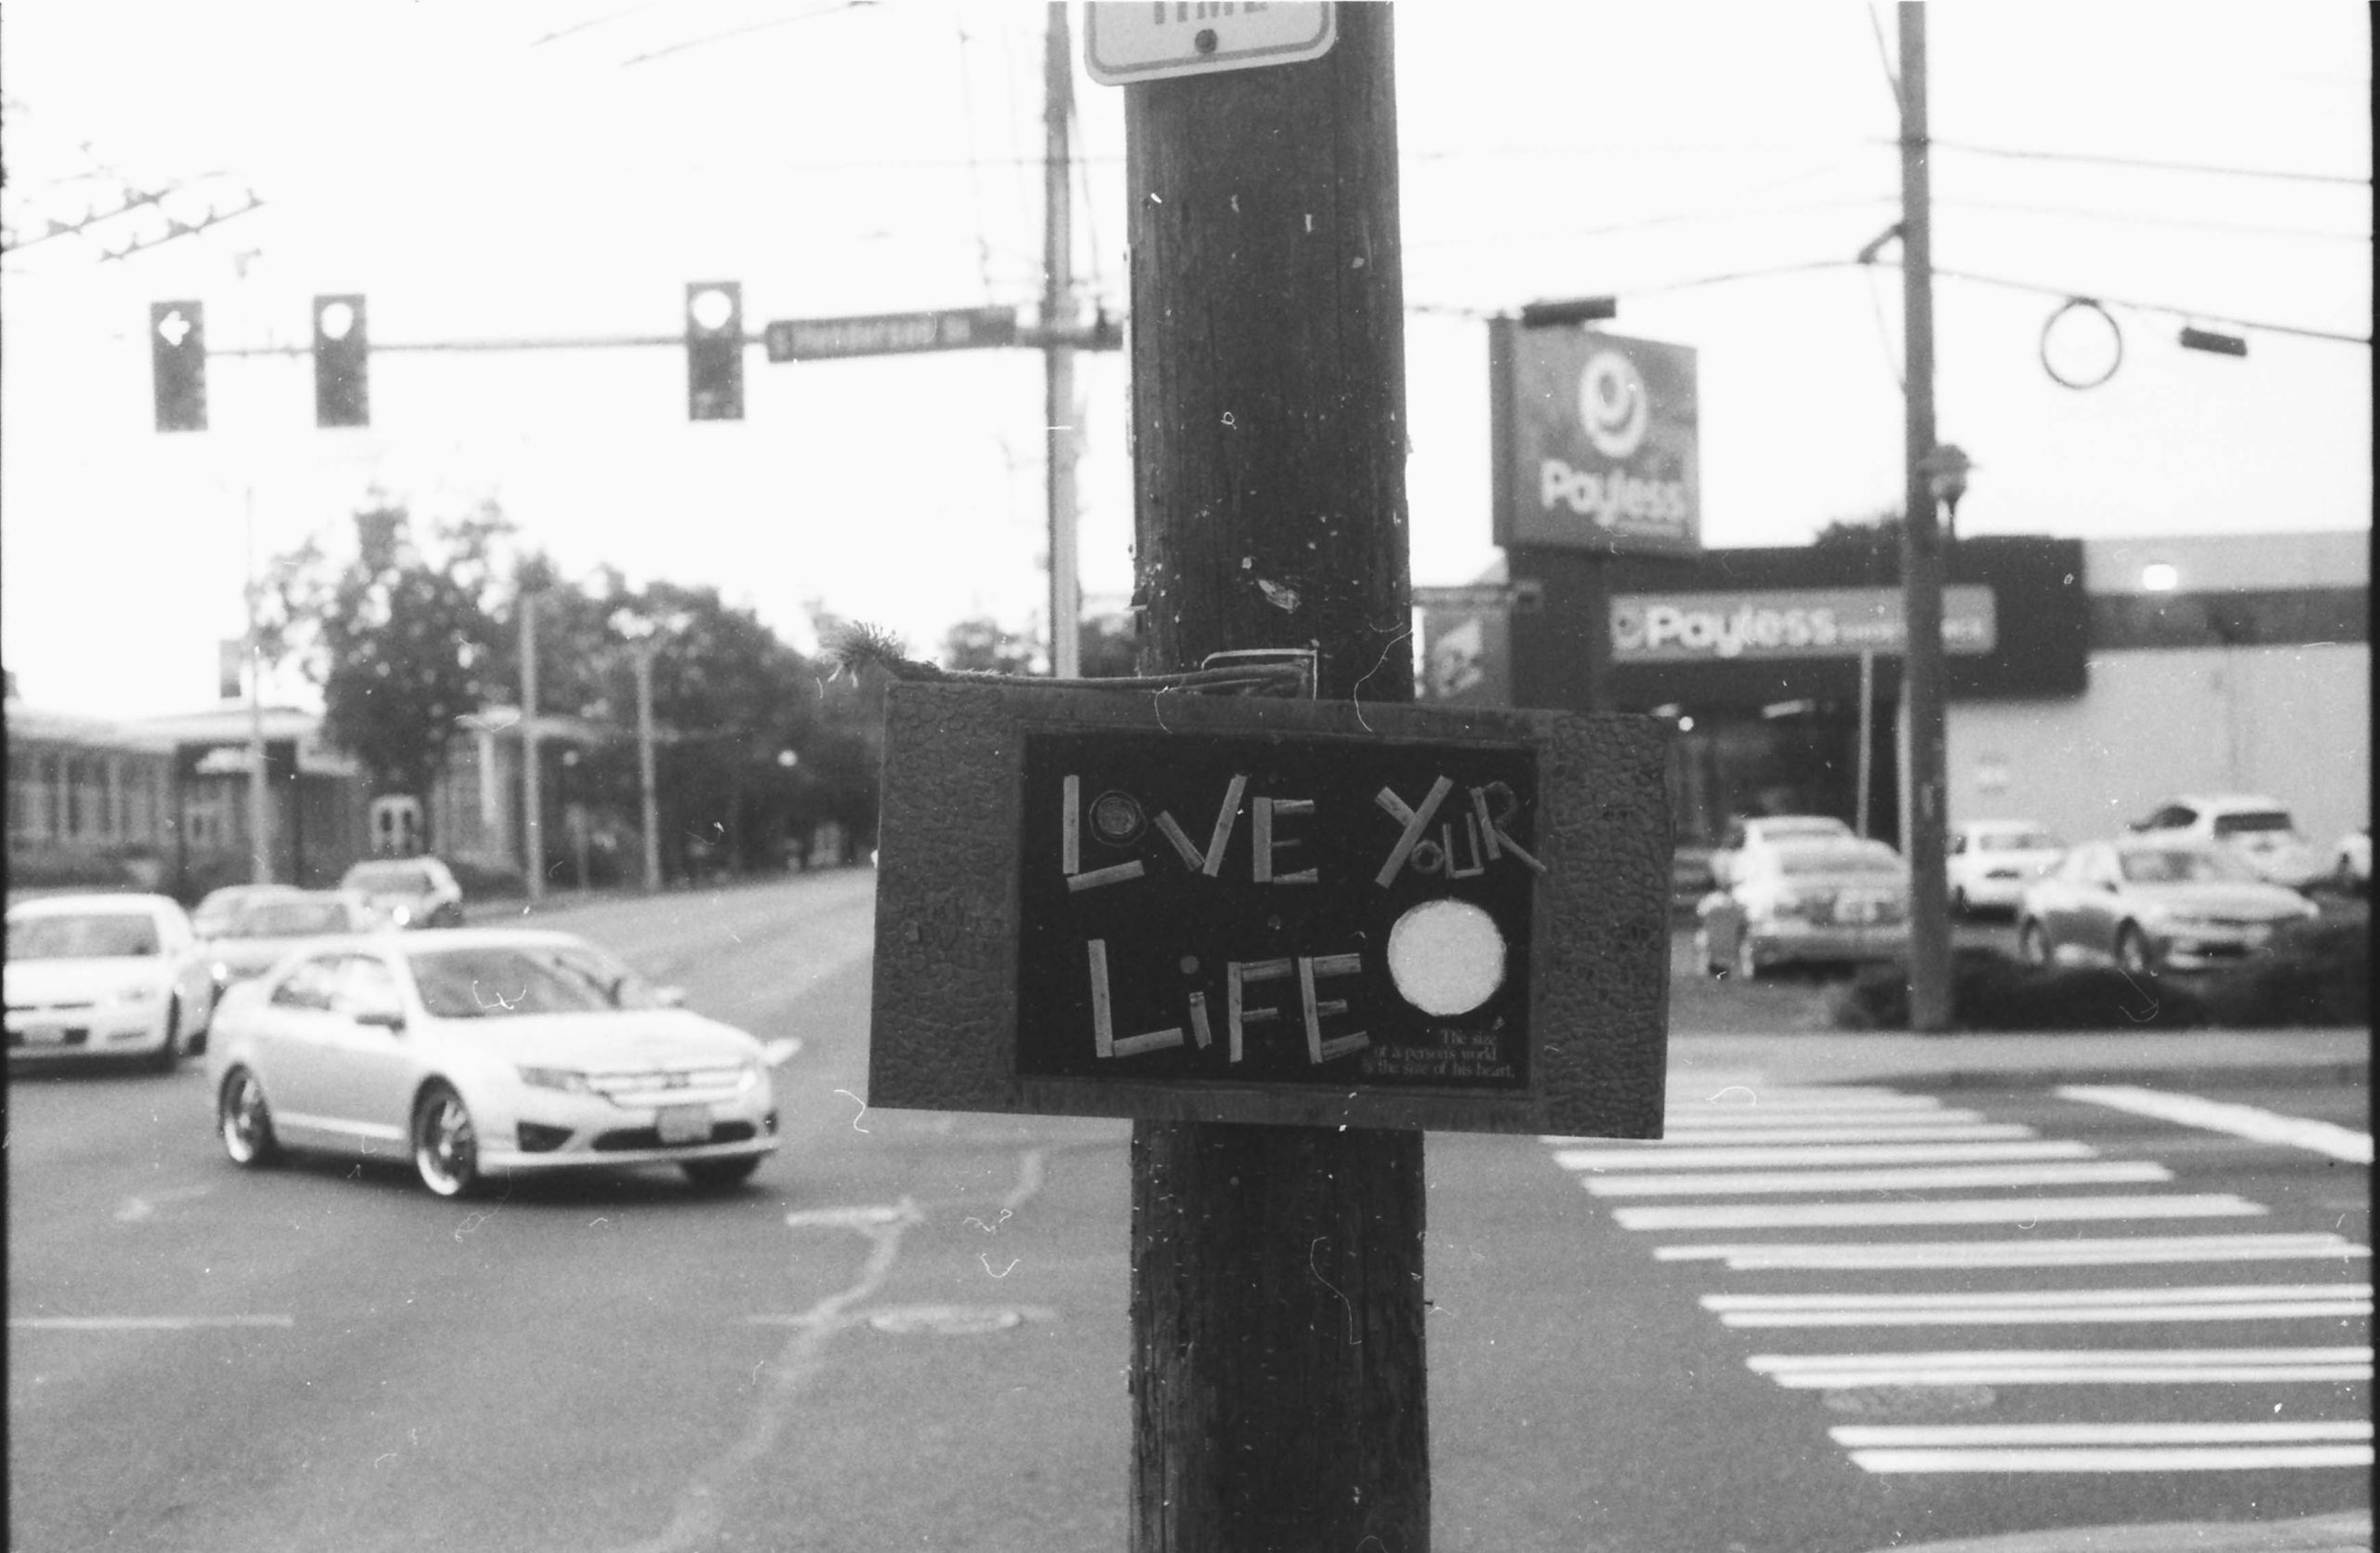 TIME
S Henderson St
Payless
Payless
LOVE YOUR
LiFE
The size
of a person's world
is the size of his heart.